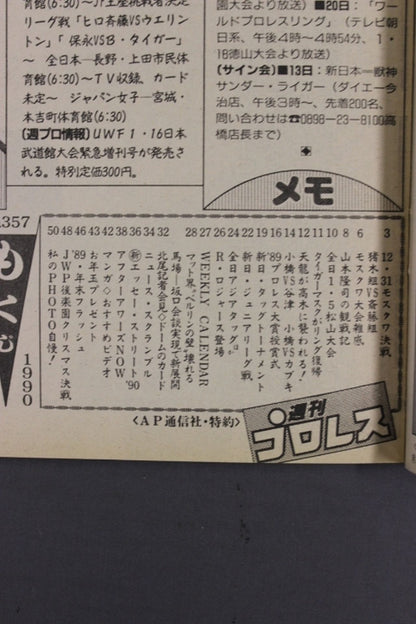 リーグ戦「ヒロ斉藤VSウエリン
トン」「保永VSB・タイガー」
〜 全日本―長野・上田市民体
育館(6時30分)〜TV収録、カード
未定〜 ジャパン女子―宮城・
本吉町体育館(6時30分)
【週プロ情報】UWF1・16日本
武道館大会緊急増刊号が発売さ
れる。特別定価300円。
園大会より放送) ■20日:「ワー
ルドプロレスリング」(テレビ朝
日系、午後4時〜4時54分、1・
18徳山大会より放送)
(サイン会)■13日:新日本―獣神
サンダー・ライガー(ダイエー今
治店、午後3時〜、先着200名、
問い合わせは☎0898-23-8100高
橋店長まで)
メモ
357
もくじ
1990
12・31モスクワ決戦
猪木組VS斎藤組
モスクワ大会雑感
山本隆司の観戦記
全日1・5松山大会
タイガーマスクがリング復帰
天龍が高木に襲われる!
小橋VS谷津 小橋VSカブキ
'89プロレス大賞授賞式
新日・タッグトーナメント
新日・ジュニアリーグ戦
全日アジアタッグ
R・ロジャース登場
WEEKLY CALENDAR
マット界、ベルリンの壁壊れる
馬場―坂口会談実現で新展開
北尾記者会見◇ドームのカード
ニュース・スクランブル
新エッセー・ストリート'90
アフター・アワーズNOW
マンガ◇おすすめビデオ
お年玉プレゼント
'89・年末フラッシュ
JWP後楽園クリスマス決戦
私のPHOTO自慢!
週刊プロレス
〈AP通信社・特約〉